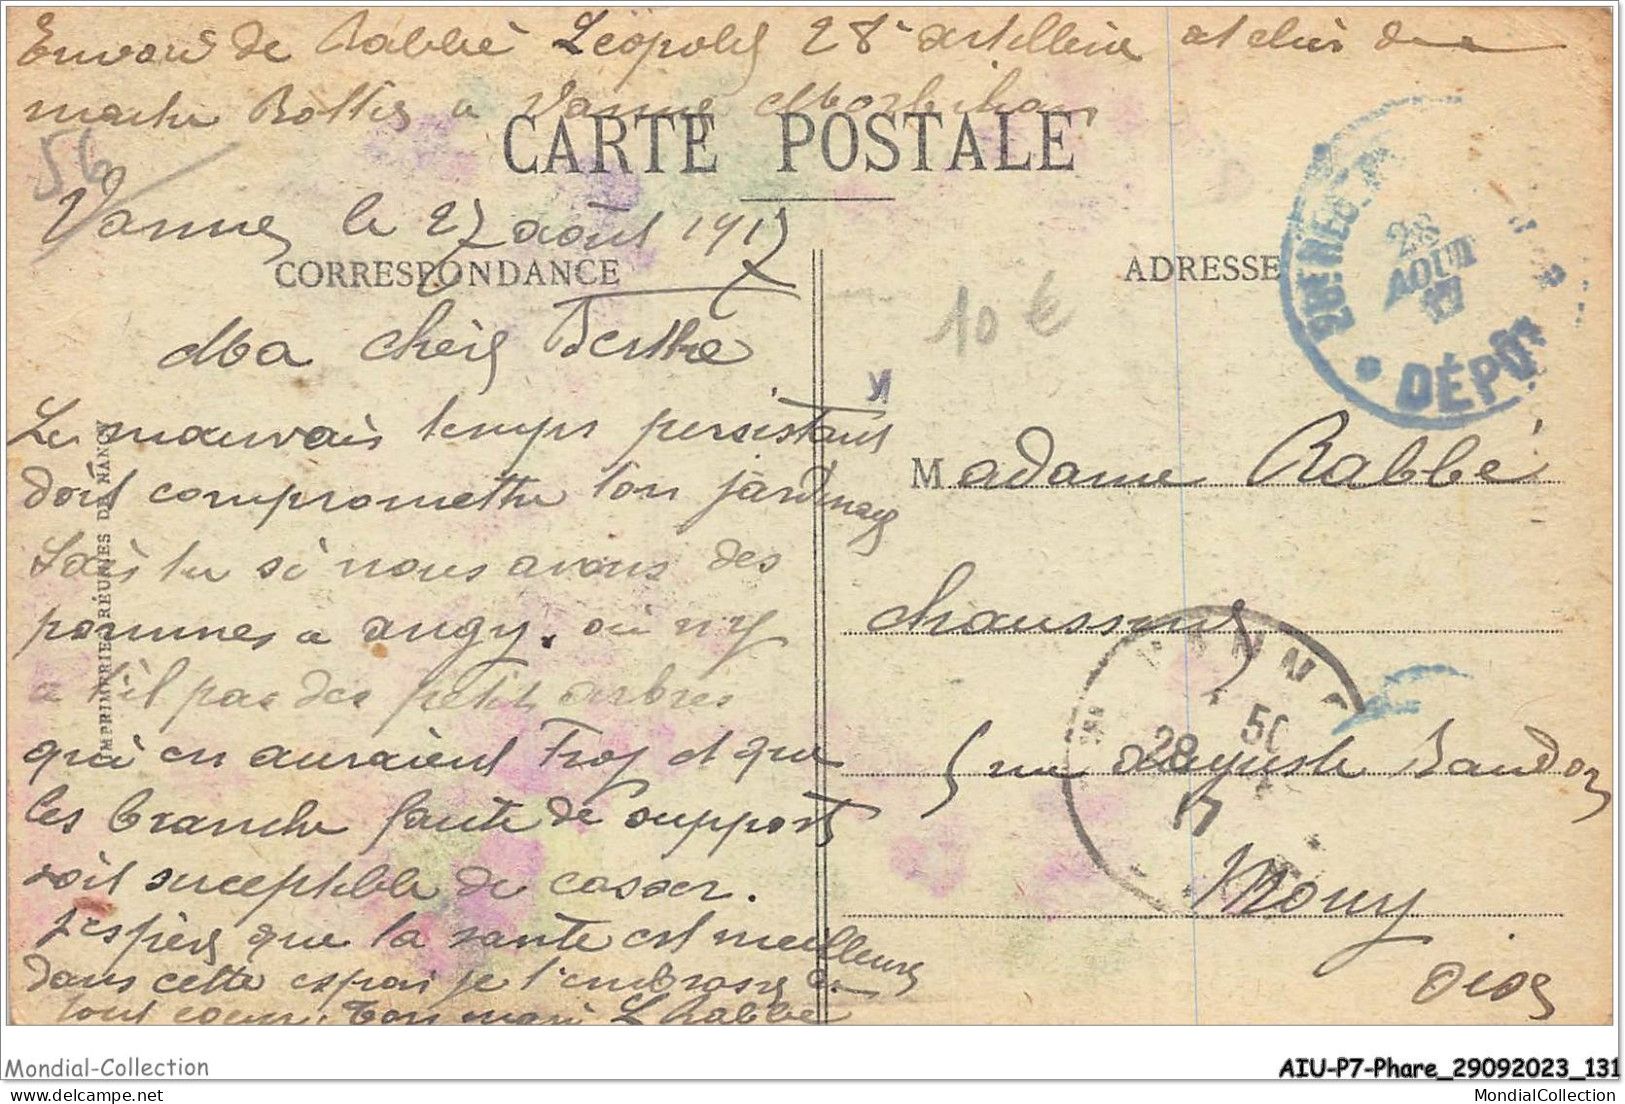 Envoi de Rabbé Léopold 28e artillerie atelier de
maitre Bottier a Vanne Morbihan
56
CARTE POSTALE
Vannes le 27 août 1917
CORRESPONDANCE
Ma chère Berthe
Le mauvais temps persistant
doit compromettre ton jardinage
Sais tu si nous avons des
pommes a angy. où n'y
a t'il pas des petits arbres
qui en auraient trop et que
les branche faute de support
soit susceptible de casser.
J'espère que la santé est meilleure
dans cette espoir je t'embrasse de
tout coeur, Ton mari L Rabbé
IMPRIMERIES RÉUNIES DE NANCY
10 €
ADRESSE
28E
28
AOUT
17
DÉPOT
Madame Rabbé
Chaussures
5 rue Auguste Baudon
Mouy
Oise
VANNES
50
28
17
Mondial-Collection
AIU-P7-Phare_29092023_131
delcampe.net
MondialCollection